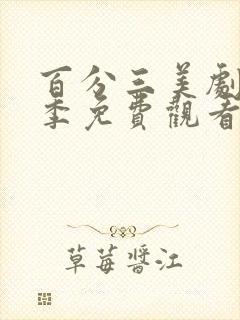 百分三美劇
季免費觀看
草莓醬江